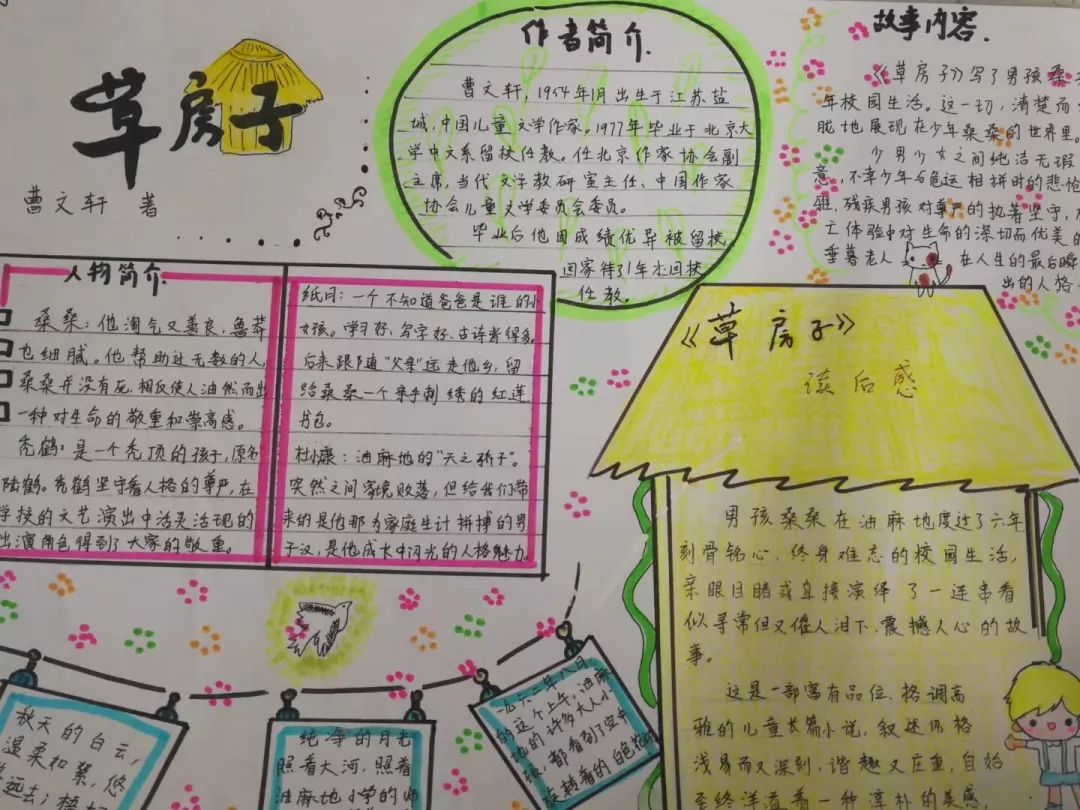 草房子
曹文轩 著
作者简介
曹文轩,1954年1月出生于江苏盐
城,中国儿童文学作家。1977年毕业于北京大
学中文系留校任教。任北京作家协会副
主席,当代文学教研室主任、中国作家
协会儿童文学委员会委员。
毕业后他因成绩优异被留校,
回家待了1年才回校
任教。
故事内容.
《草房子》写了男孩桑
年校园生活。这一切,清楚而
胧地展现在少年桑桑的世界里。
少男少女之间纯洁无瑕
意,不幸少年与危运相拼时的悲怆
残疾男孩对尊严的执着坚守,
亡体验中对生命的深切而优美的
垂暮老人 在人生的最后瞬
出的人格
人物简介
桑桑:他淘气又善良,鲁莽
也细腻。他帮助过无数的人,
桑桑并没有死,相反使人油然而出
一种对生命的敬重和崇高感。
秃鹤:是一个秃顶的孩子,原名
陆鹤。秃鹤坚守着人格的尊严,在
学校的文艺演出中活灵活现的
出演角色得到了大家的敬重。
纸月:一个不知道爸爸是谁的小
女孩。学习好、写字好、古诗背得多。
后来跟随“父亲”远走他乡,留
给桑桑一个亲手刺绣的红莲
书包。
杜小康:油麻地的“天之骄子”。
突然之间家境败落,但给我们带
来的是他那为家庭生计拼搏的男
子汉,是他成长中闪光的人格魅力
《草房子》
读后感
男孩桑桑在油麻地度过了六年
刻骨铭心、终身难忘的校园生活,
亲眼目睹或直接演绎了一连串看
似寻常但又催人泪下、震撼人心的故
事。
这是一部富有品位、格调高
雅的儿童长篇小说,叙述风格
浅易而又深刻、谐趣又庄重,自始
至终洋溢着一种淳朴的美感
秋天的白云,
温柔如絮,悠
远去;梧
纯净的月光
照着大河,照着
油麻地小学的师
一九六二年八月
的这个上午,油麻
地的许多大人小
孩,都看到了空中
旋转着的白色